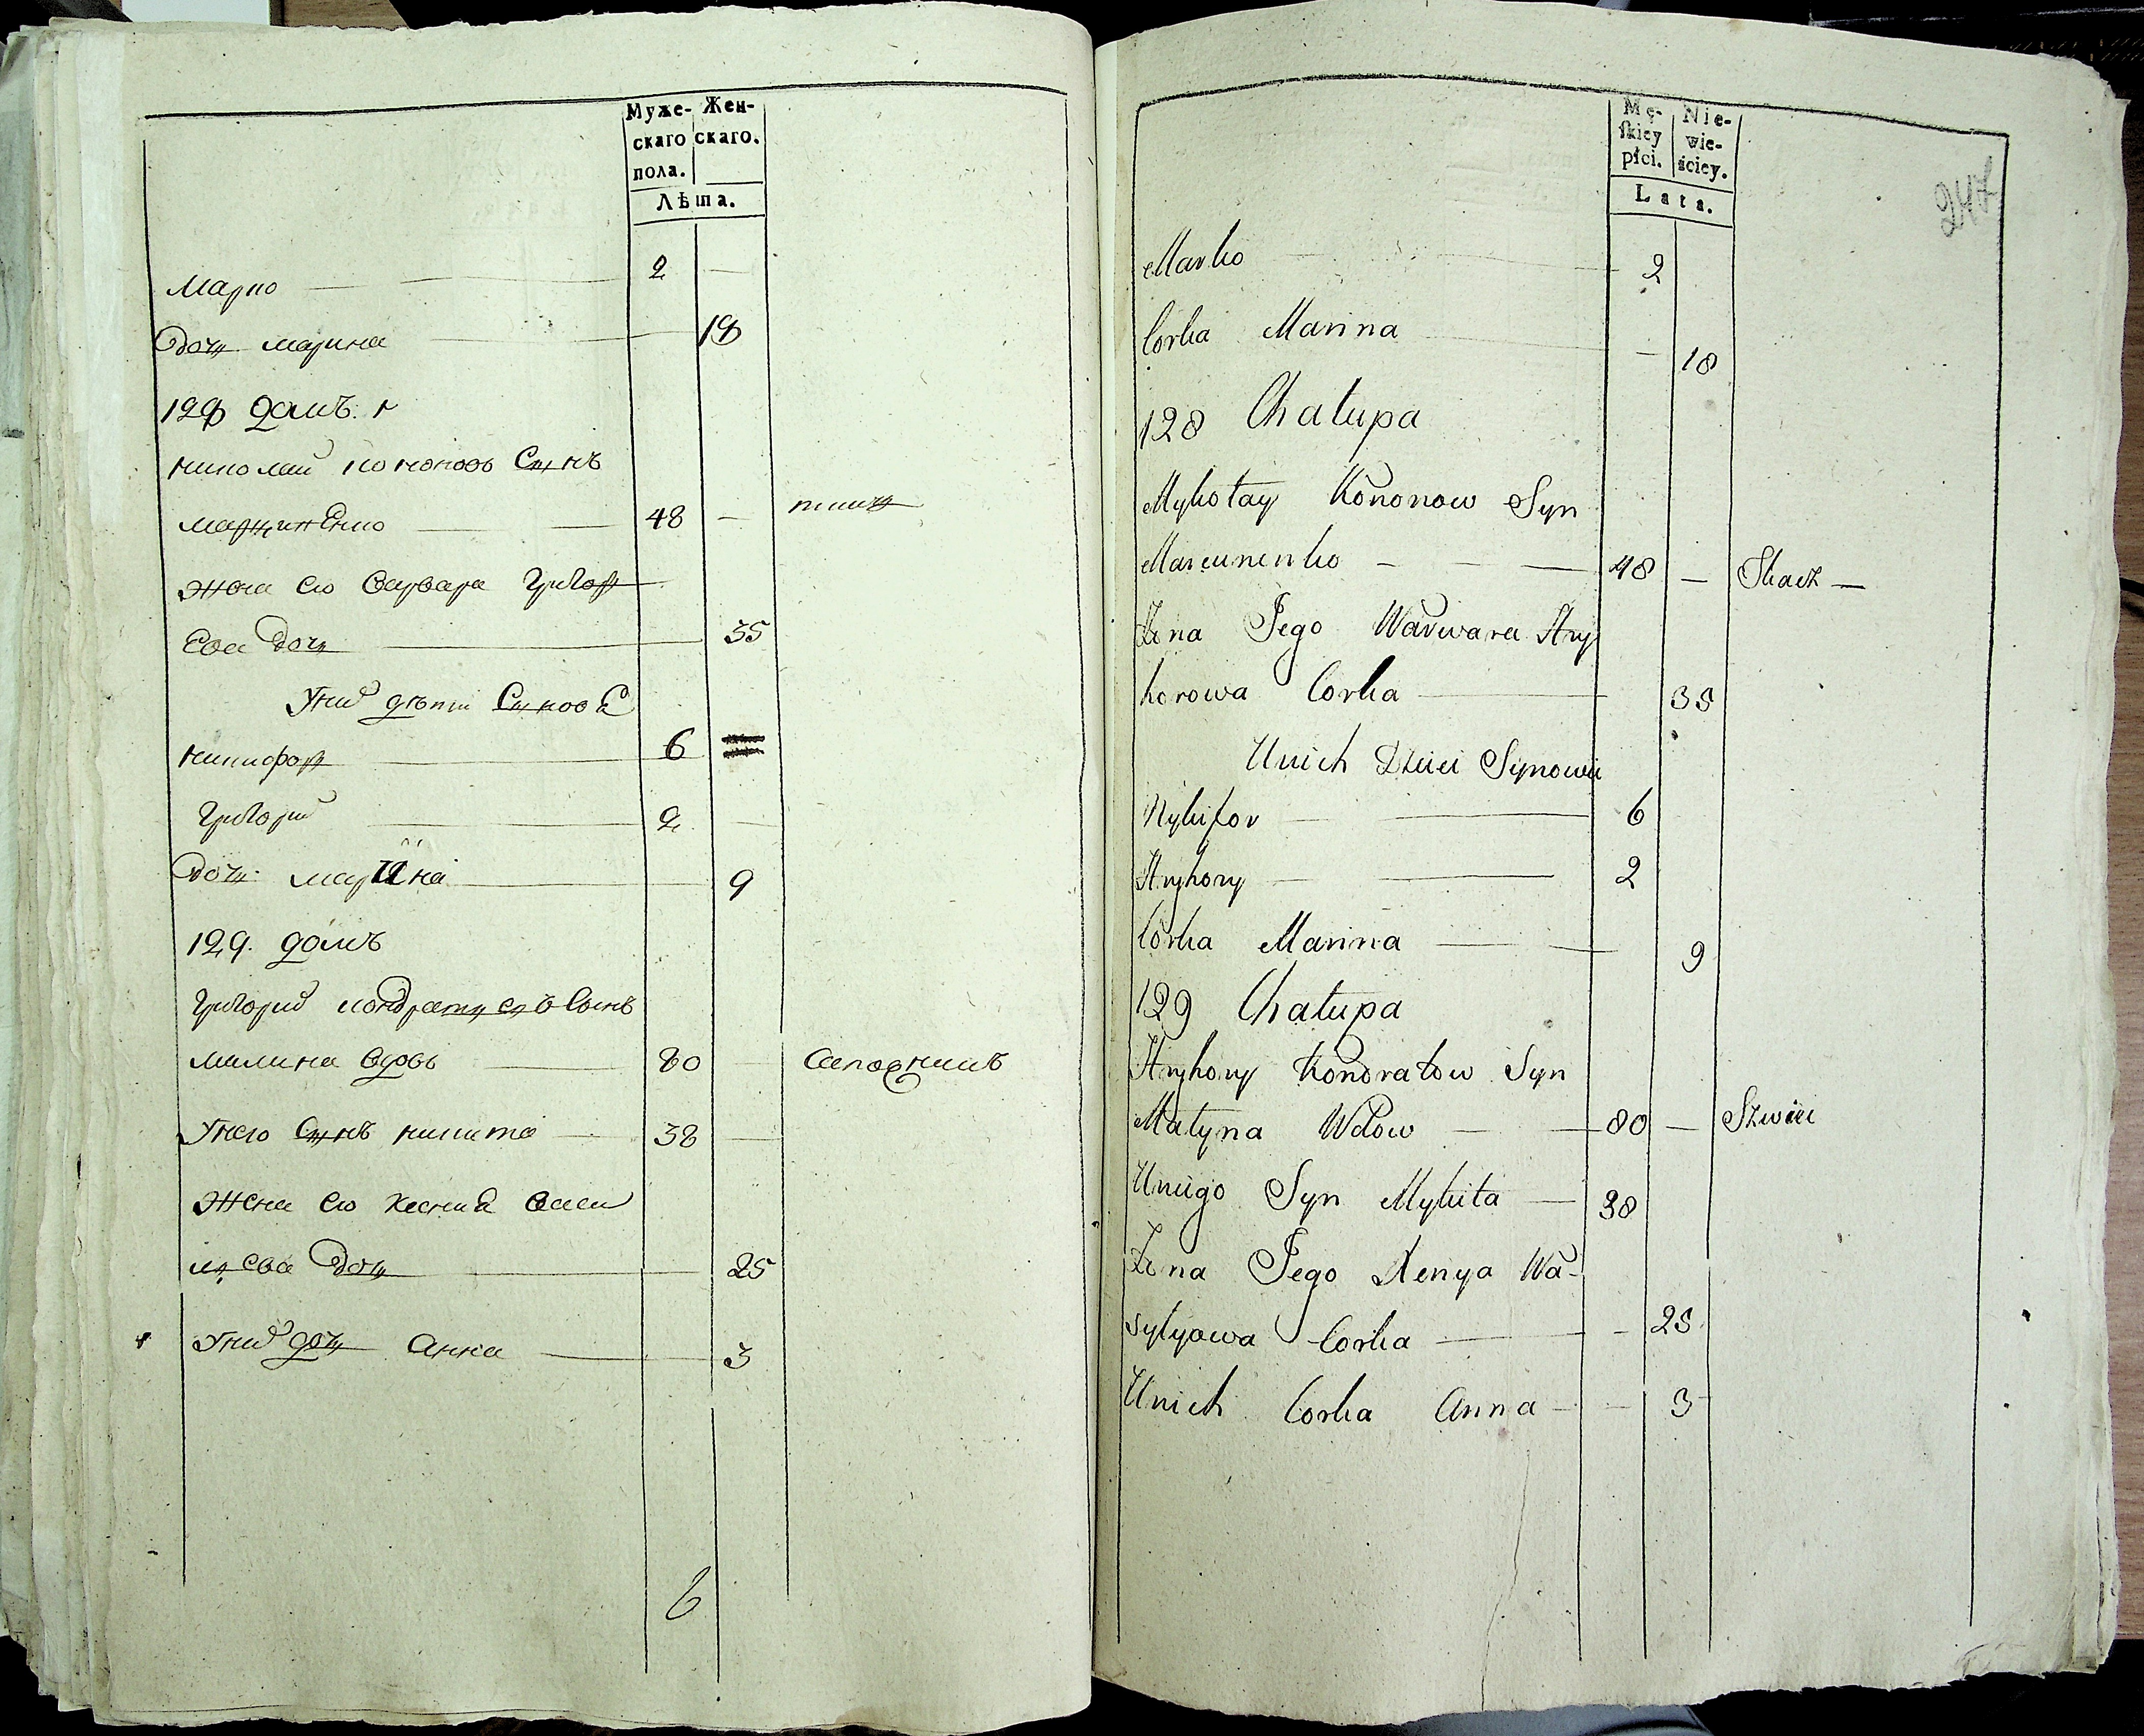 Муже- Жен-
скаго скаго.
пола.
Лѣта.
Марко 2 —
дочь марина — 18
128 домъ.
николай кононовъ Сынъ
марцинЕнко 48 — ткачь
жена его варвара григор
Ева дочь 35
Уних дѣти Сынов
никифор 6
григорий 2 —
дочь марина 9
129. домъ
григорий кондратьевъ Сынъ
малина вдовъ 80 Сапожникъ
Унего Сынъ никита 38 —
жена его ксения васи
льева дочь 25
Уних дочь анна 3
6
Mę- Nie-
skiey wie-
płci. ściey.
Lata.
247
Marko 2
Corka Marina — 18
128 Chałupa
Mykołay Kononow Syn
Marcunenko — — — 48 — Tkacz —
Żona Jego Warwara Hry
horowa Corka 35
Unich Dzieci Synowie
Nykifor 6
Hryhory 2
Corka Marina 9
129 Chałupa
Hryhory Kondratow Syn
Małyna Wdow — — 80 — Szwiec
Uniego Syn Mykita — 38
Żona Jego Xenya Wa-
sylyowa Corka — 25
Unich Corka Anna — — 3